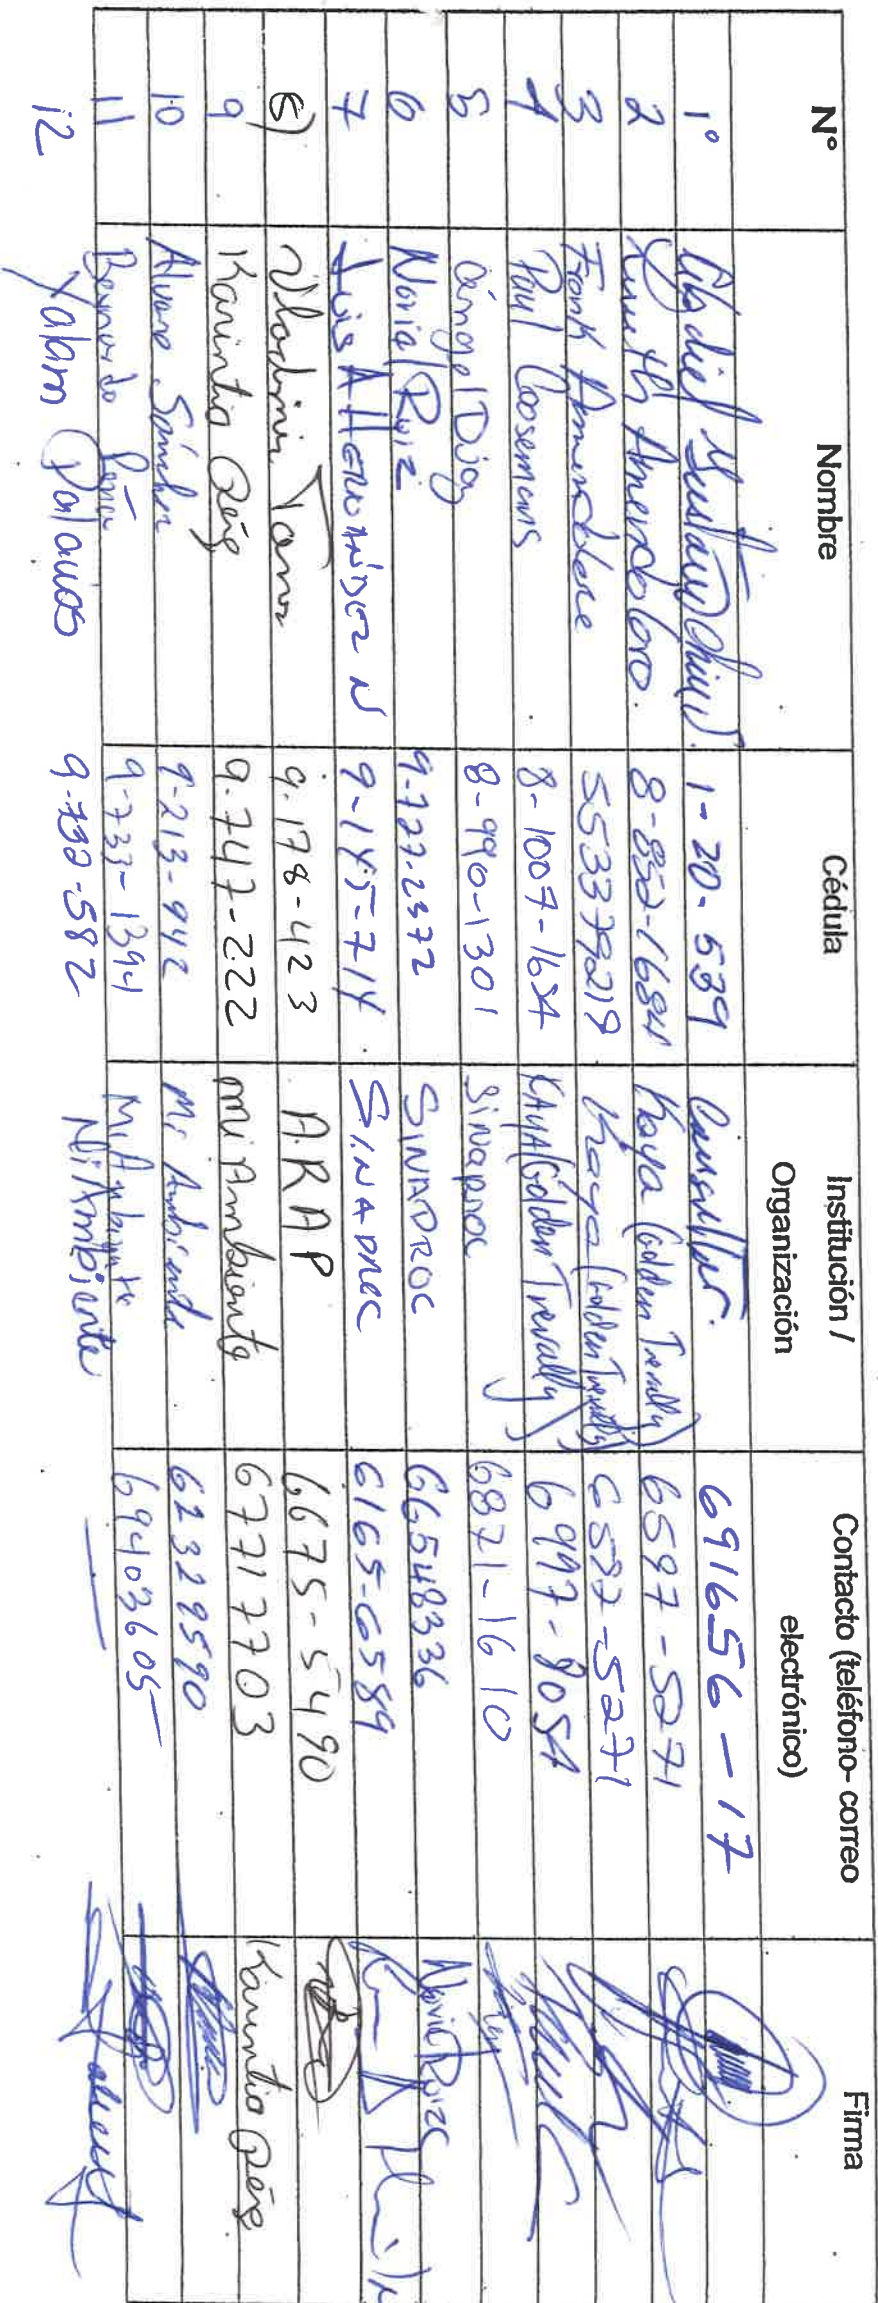 N° Nombre Cédula Institución / Organización Contacto (teléfono- correo electrónico) Firma
1° 1-20-539 Consultor. 691656-17
2 8-852-1684 Kaya (Golden Trevally) 6597-5271
3 Frank 553379219 Kaya (Golden Trevally) 6597-5271
4 Paul Coosemans 8-1007-1654 KAYA (Golden Trevally) 6997-8054
5 Angel 8-990-1301 Sinaproc 6871-1610
6 Noriel Ruiz 9-727-2372 SINAPROC 66548336 Noriel Ruiz
7 Luis A Hernández N 9-145-714 SINAPROC 6165-6589
8) Vladimir 9-178-423 A.R.A.P 6675-5490
9 Karintia 9-747-222 Mi Ambiente 67717703 Karintia
10 Alvaro Sánchez 9-213-942 Mi Ambiente 62329590
11 9-733-1394 Mi Ambiente 69403605
12 Palacios 9-732-582 MiAmbiente —